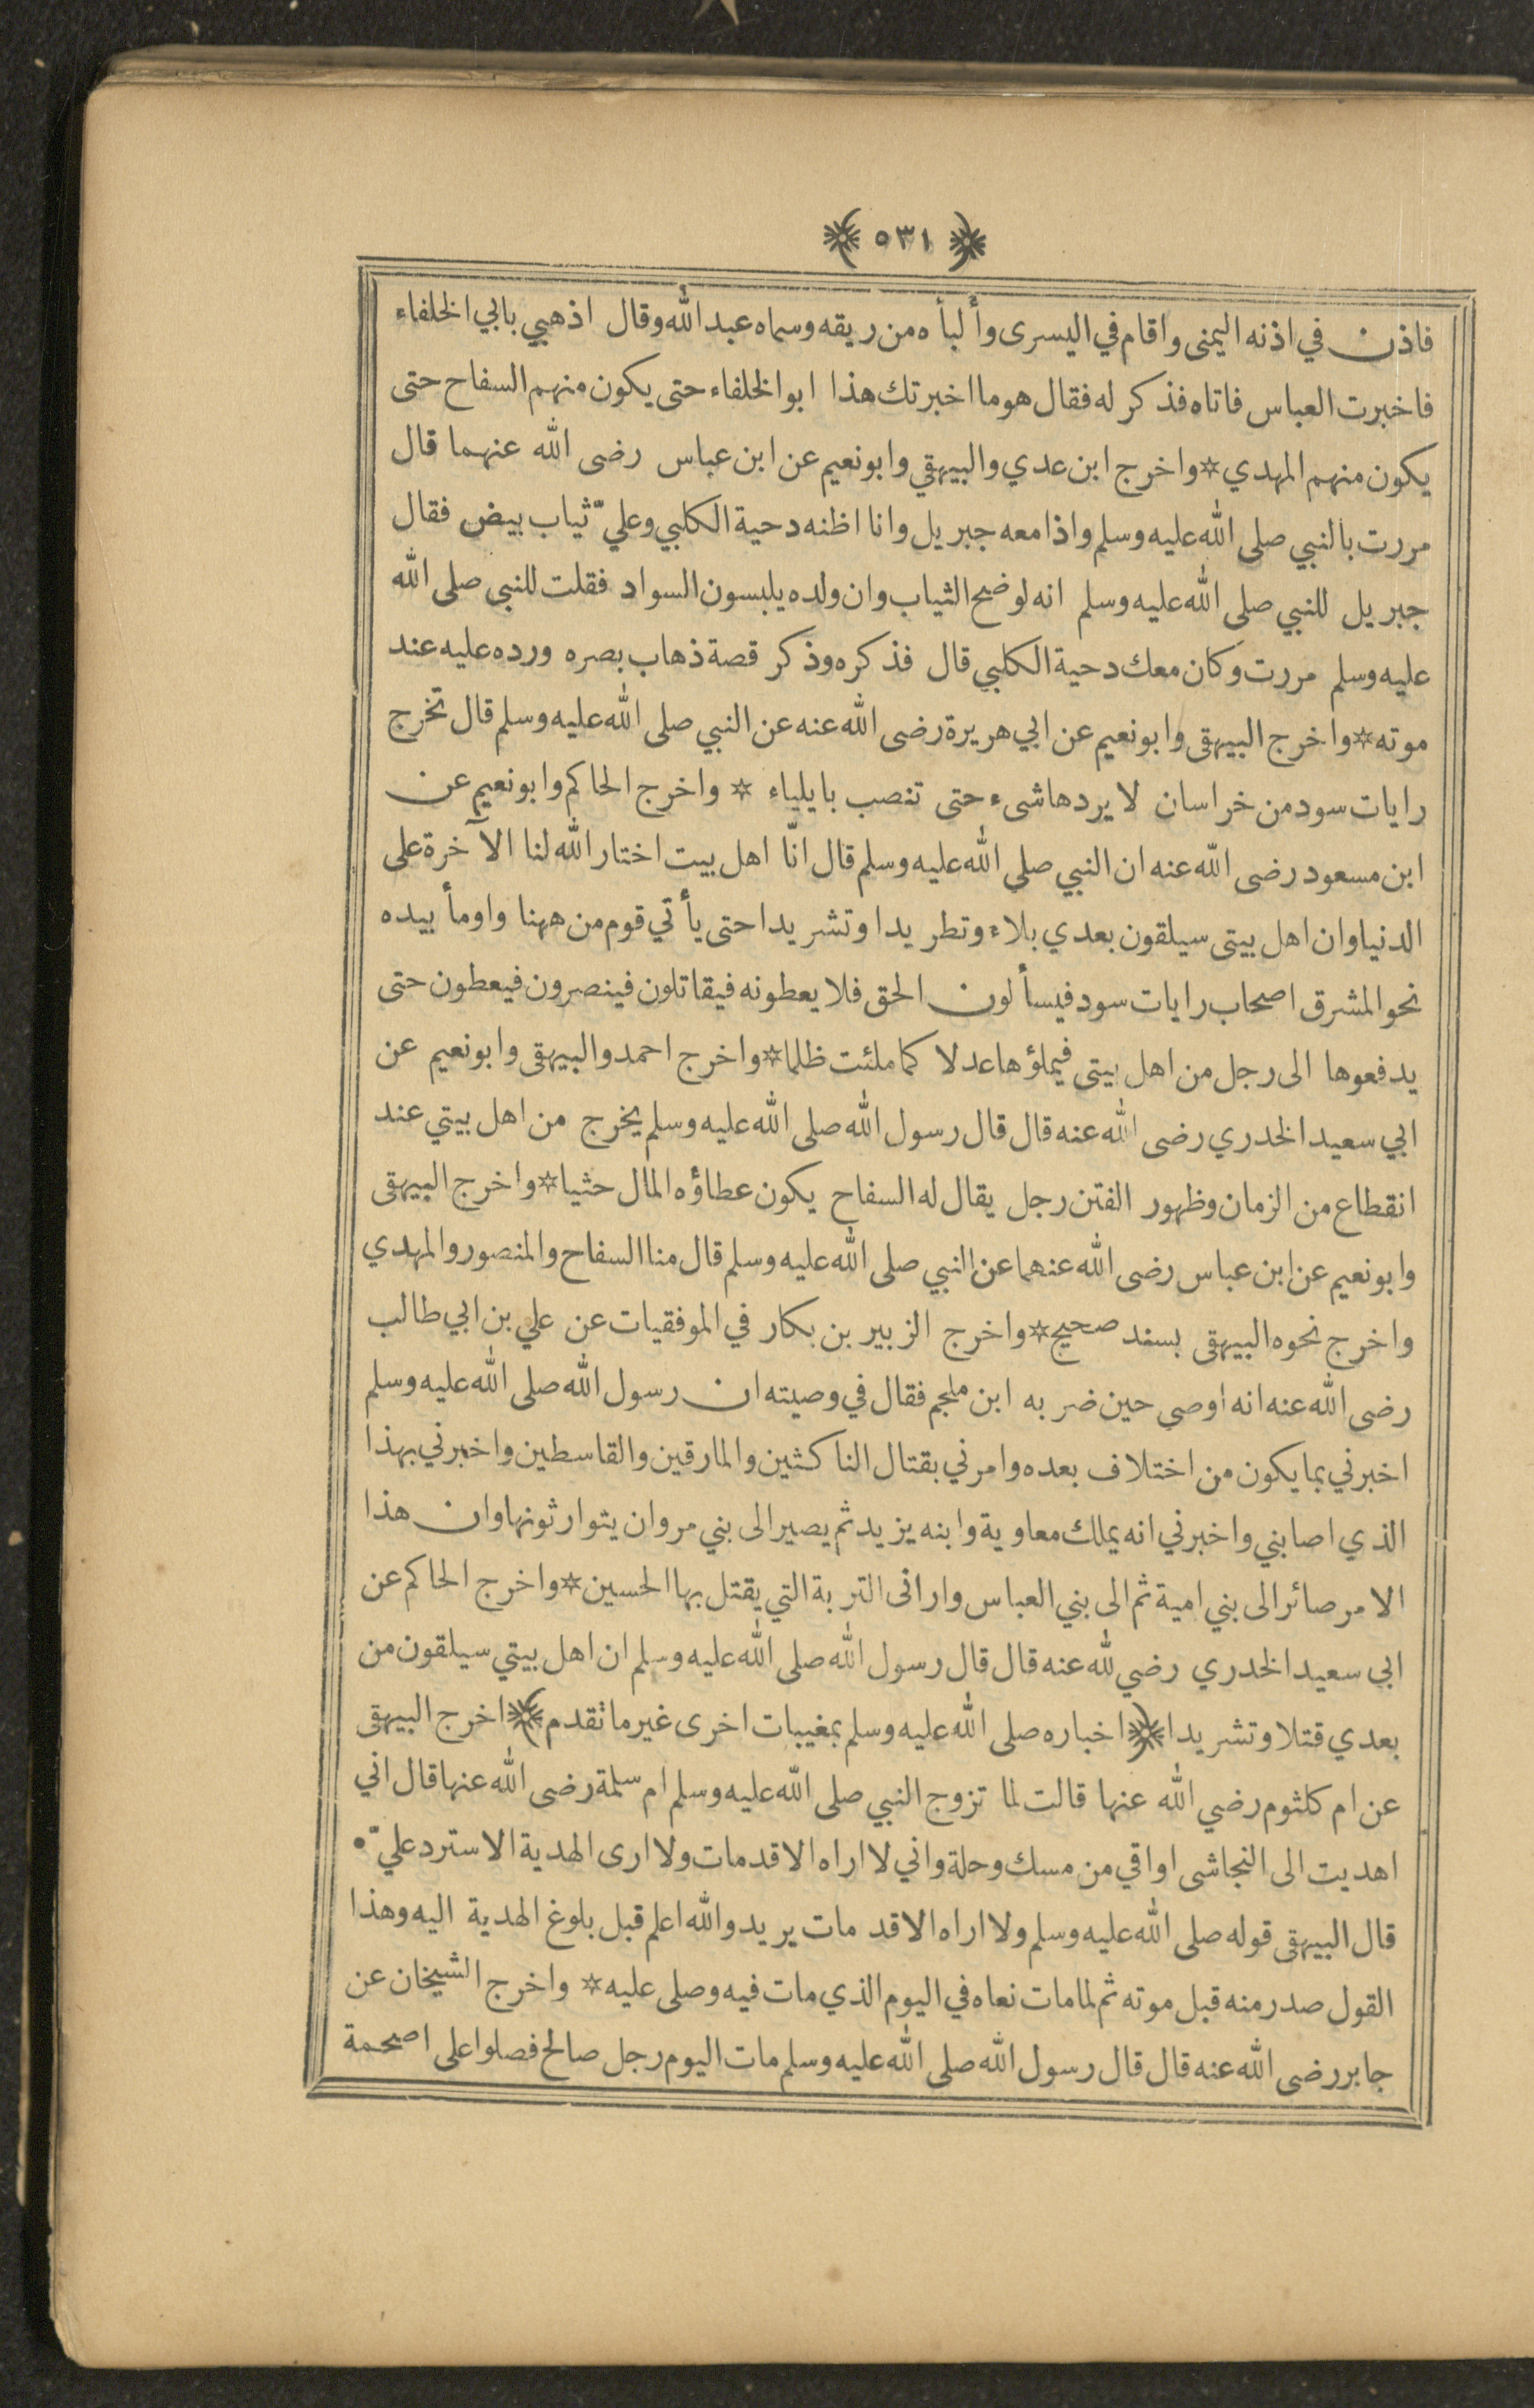 ﴿ ٥٣١ ﴾
فاذن في اذنه اليمنى واقام في اليسرى وألبأه من ريقه وسماه عبد الله وقال اذهبي بابي الخلفاء
فاخبرت العباس فاتاه فذكر له فقال هو ما اخبرتك هذا ابو الخلفاء حتى يكون منهم السفاح حتى
يكون منهم المهدي * واخرج ابن عدي والبيهقي وابو نعيم عن ابن عباس رضى الله عنهما قال
مررت بالنبي صلى الله عليه وسلم واذا معه جبريل وانا اظنه دحية الكلبي وعليّ ثياب بيض فقال
جبريل للنبي صلى الله عليه وسلم انه لوضح الثياب وان ولده يلبسون السواد فقلت للنبي صلى الله
عليه وسلم مررت وكان معك دحية الكلبي قال فذكره وذكر قصة ذهاب بصره ورده عليه عند
موته * واخرج البيهقى وابو نعيم عن ابي هريرة رضى الله عنه عن النبي صلى الله عليه وسلم قال تخرج
رايات سود من خراسان لا يردها شىء حتى تنصب بايلياء * واخرج الحاكم وابو نعيم عن
ابن مسعود رضى الله عنه ان النبي صلى الله عليه وسلم قال انّا اهل بيت اختار الله لنا الآخرة على
الدنيا وان اهل بيتى سيلقون بعدي بلاء وتطريدا وتشريدا حتى يأتي قوم من ههنا واومأ بيده
نحو المشرق اصحاب رايات سود فيسألون الحق فلا يعطونه فيقاتلون فينصرون فيعطون حتى
يدفعوها الى رجل من اهل بيتى فيملؤها عدلا كما ملئت ظلما * واخرج احمد والبيهقى وابو نعيم عن
ابي سعيد الخدري رضى الله عنه قال قال رسول الله صلى الله عليه وسلم يخرج من اهل بيتي عند
انقطاع من الزمان وظهور الفتن رجل يقال له السفاح يكون عطاؤه المال حثيا * واخرج البيهقى
وابو نعيم عن ابن عباس رضى الله عنهما عن النبي صلى الله عليه وسلم قال منا السفاح والمنصور والمهدي
واخرج نحوه البيهقى بسند صحيح * واخرج الزبير بن بكار في الموفقيات عن علي بن ابي طالب
رضى الله عنه انه اوصى حين ضربه ابن ملجم فقال في وصيته ان رسول الله صلى الله عليه وسلم
اخبرني بما يكون من اختلاف بعده وامرني بقتال الناكثين والمارقين والقاسطين واخبرني بهذا
الذي اصابني واخبرني انه يملك معاوية وابنه يزيد ثم يصير الى بني مروان يتوارثونها وان هذا
الامر صائر الى بني امية ثم الى بني العباس وارانى التربة التي يقتل بها الحسين * واخرج الحاكم عن
ابى سعيد الخدري رضي لله عنه قال قال رسول الله صلى الله عليه وسلم ان اهل بيتي سيلقون من
بعدي قتلا وتشريدا ﴿ اخباره صلى الله عليه وسلم بمغيبات اخرى غير ما تقدم ﴾ اخرج البيهقى
عن ام كلثوم رضي الله عنها قالت لما تزوج النبي صلى الله عليه وسلم ام سلمة رضى الله عنها قال اني
اهديت الى النجاشى اواقي من مسك وحلة واني لا اراه الا قد مات ولا ارى الهدية الا سترد عليّ •
قال البيهقى قوله صلى الله عليه وسلم ولا اراه الا قد مات يريد والله اعلم قبل بلوغ الهدية اليه وهذا
القول صدر منه قبل موته ثم لما مات نعاه في اليوم الذي مات فيه وصلى عليه * واخرج الشيخان عن
جابر رضى الله عنه قال قال رسول الله صلى الله عليه وسلم مات اليوم رجل صالح فصلوا على اصحمة